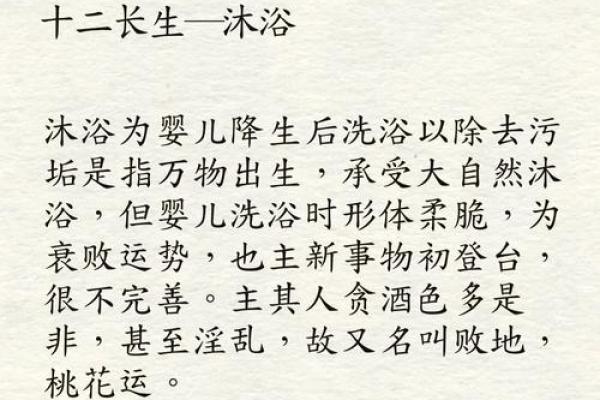 十二长生—沐浴
沐浴为婴儿降生后洗浴以除去污
垢是指万物出生，承受大自然沐
浴，但婴儿洗浴时形体柔脆，为
衰败运势，也主新事物初登台，
很不完善。主其人贪酒色多是
非，甚至淫乱，故又名叫败地，
桃花运。